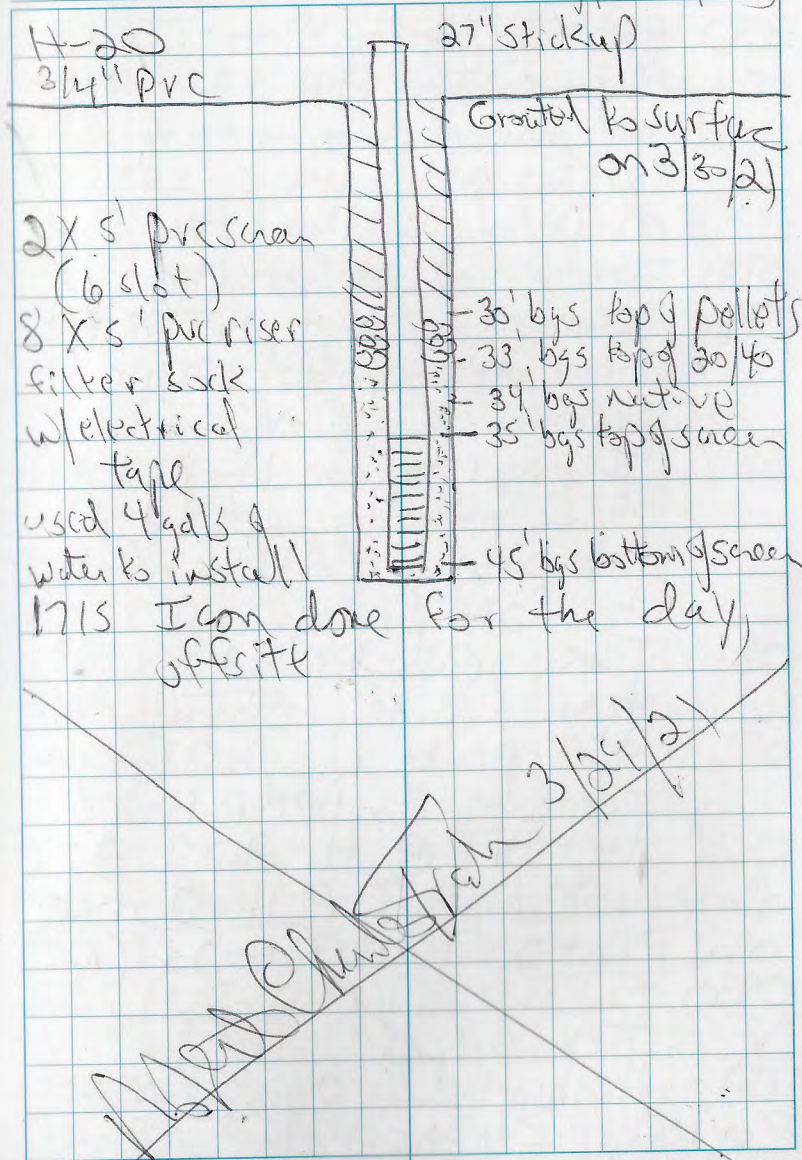 H-20
3/4" PVC
27" Stickup
Grouted to surfac
on 3/30/21
2 X 5' pvc screen
(6 slot)
8 X 5' pvc riser
filter sock
w/electrical
tape
used 4 gals of
water to install
30' bgs top of pellets
33' bgs top of 20/40
34' bgs native
35' bgs top of screen
45' bgs bottom of screen
1715 Icon done for the day,
offsite
3/24/21